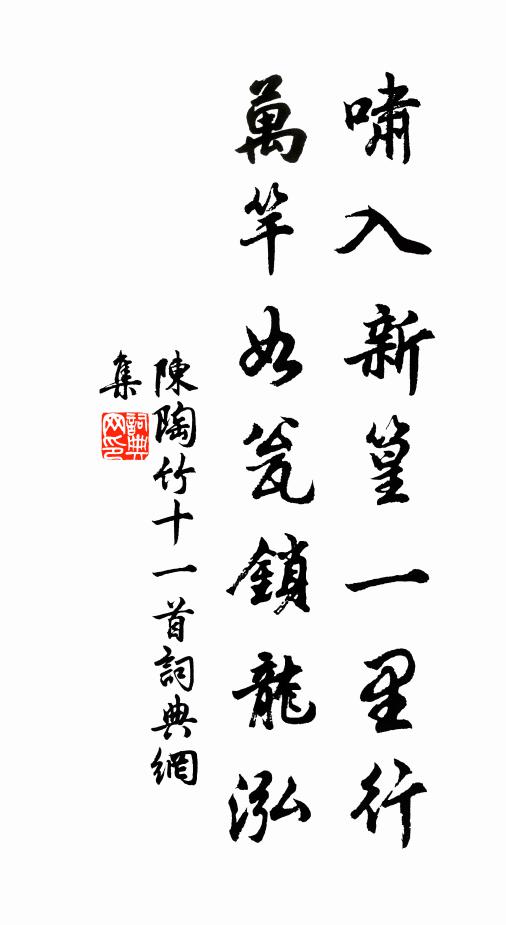 嘯入新篁一里行
萬竿如瓮鎖龍泓
陳陶竹十一首詞典網
集
詞典
网印